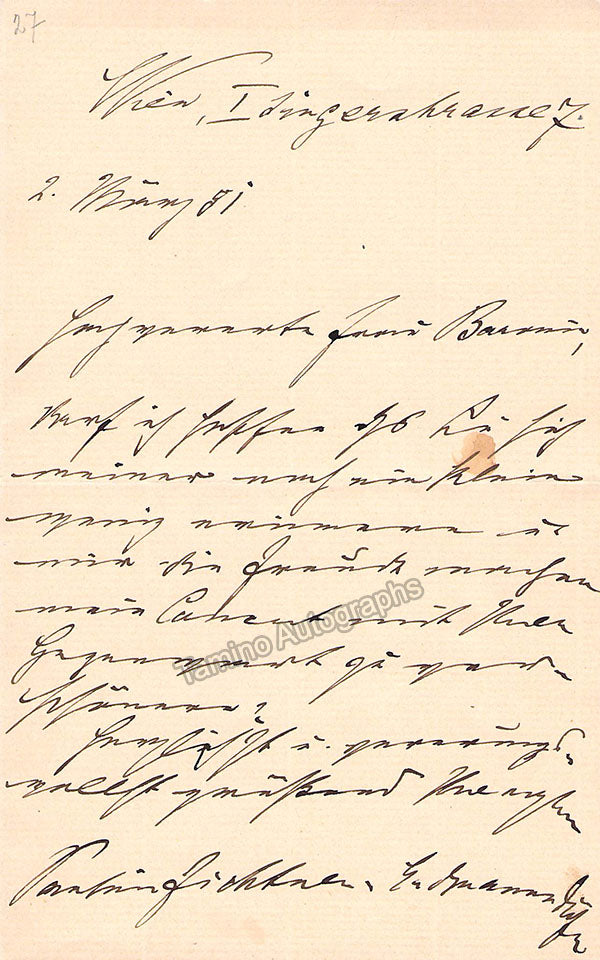 27
Wien, I Singerstrasse 7.
2. März 81
Hochvererte Frau Baronin,
Darf ich hoffen dß Sie sich
meiner noch ein klein
wenig erinnern u.
mir die Freude machen
mein Concert mit Ihrer
Gegenwart zu ver-
schönern?
Herzlichst u. vererungs-
vollst grüßend Ihre
Pauline Fichtner-Erdmannsdörfer
Tamino Autographs